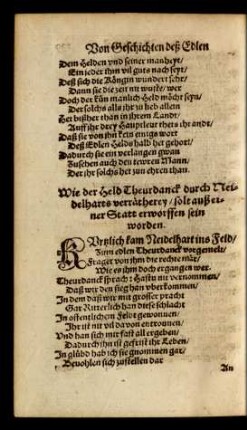 Von Geschichten deß Edlen
Dem Helden vnd seiner manheyt/
Ein jeder ihm vil guts nach seyt/
Deß sich die Köngin wundert sehr/
Dann sie die zeit nit wußt/ wer
Doch der kün manlich Held möcht seyn/
Der solchs alls ihr zu lieb allein
Het bißher than in ihrem Landt/
Auff ihr drey Hauptleut thets ihr andt/
Daß sie von ihn kein einigs wort
Deß Edlen Helds halb het gehort/
Dadurch sie ein verlangen gwan
Zusehen auch den teuren Mann/
Der ihr solchs het zun ehren than.
Wie der Held Theurdanck durch Nei-
delharts verrätherey/ solt auß ei-
ner Statt erworffen sein
worden.
KVrtzlich kam Neidelhart ins Feld/
Zum edlen Theurdanck vorgemelt/
Fraget von ihm die rechte mär/
Wie es ihm doch ergangen wer.
Theurdanck sprach: Hastu nit vernommen/
Daß wir den sieg han vberkommen/
In dem daß wir mit grosser pracht
Gar Ritterlich han diese schlacht
In offentlichem Feldt gewonnen/
Ihr ist nit vil davon entronnen/
Vnd han sich mir fast all ergeben/
Dadurch ihn ist gefrist ihr Leben/
In glübd hab ich sie gnommen gar/
Bevohlen sich zustellen dar
An